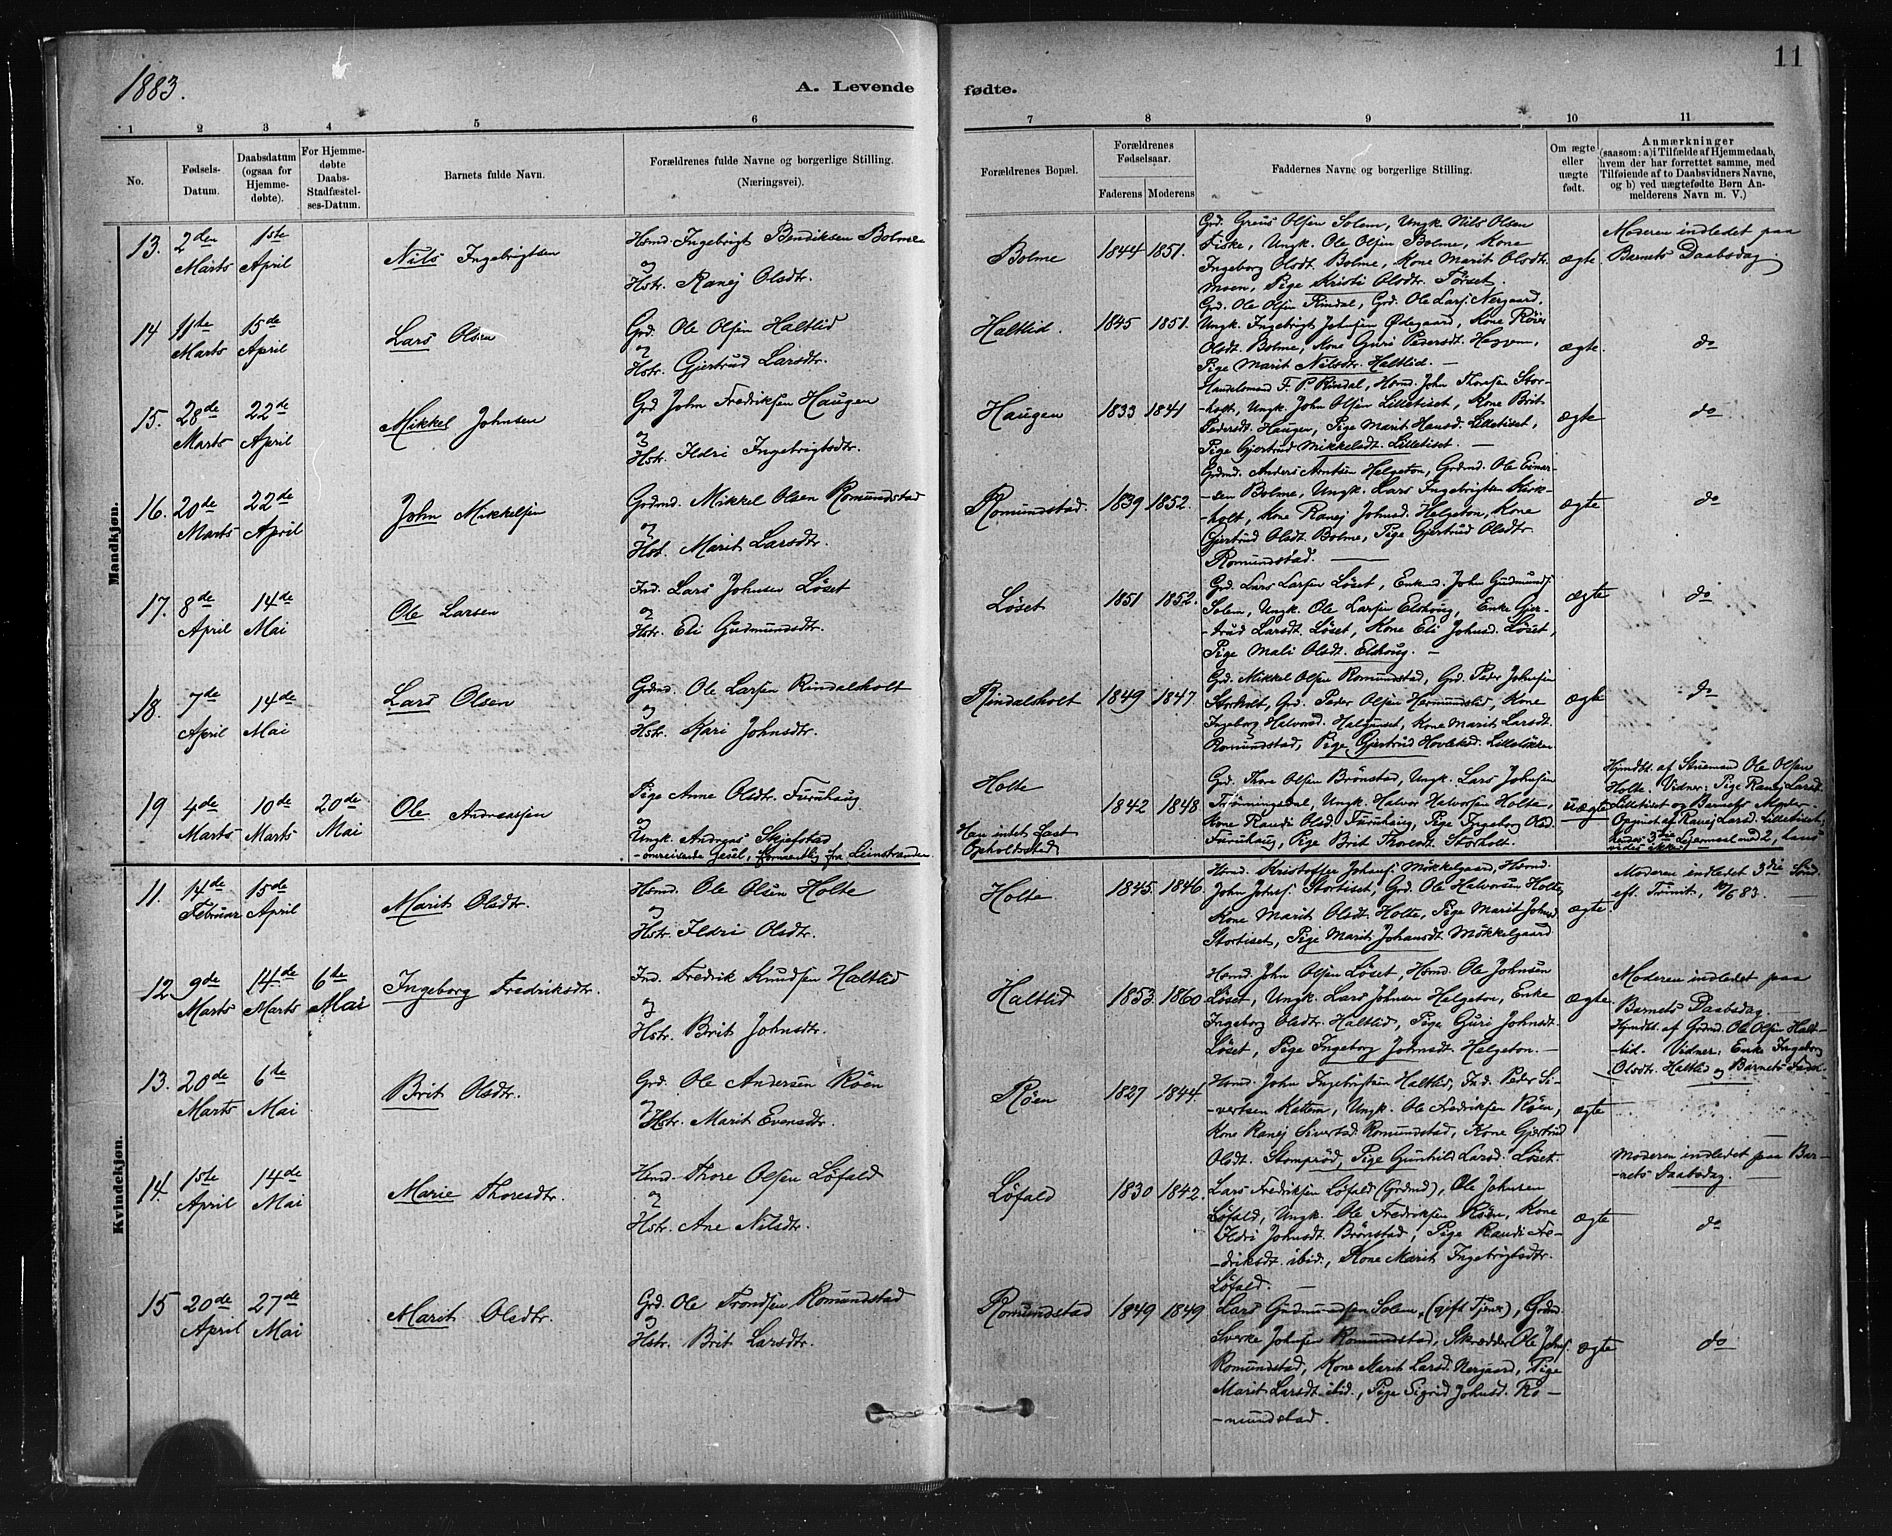 1883.
A. Levende fødte.
11
1 2 3 4 5 6 7 8 9 10 11
No.
Fødsels-
Datum.
Daabsdatum
(ogsaa for
Hjemme-
døbte).
For Hjemme-
døbte
Daabs-
Stadfæstel-
ses-Datum.
Barnets fulde Navn.
Forældrenes fulde Navne og borgerlige Stilling.
(Næringsvei).
Forældrenes Bopæl.
Forældrenes
Fødselsaar.
Faderens Moderens
Faddernes Navne og borgerlige Stilling.
Om ægte
eller
uægte
født.
Anmærkninger
(saasom: a) i Tilfælde af Hjemmedaab,
hvem der har forrettet samme, med
Tilføiende af to Daabsvidners Navne,
og b) ved uægtefødte Børn An-
melderens Navn m. V.)
Mandkjøn.
13. 2den Marts
1ste April
Nils Ingebrigtsen
Hsmd. Ingebrigt Bendiksen Bolme
og
Hstr. Ranej Olsdtr.
Bolme
1844 1851.
Grd. Greus Olsen Solem, Ungk. Nils Olsen
Fiske, Ungk. Ole Olsen Bolme, Kone
Ingeborg Olsdt. Bolme, Kone Marit Olsdt.
Moen, Pige Kristi Olsdtr. Tørset.
ægte
Moderen indledet paa
Barnets Daabsdag
14 11te Marts
15de April
Lars Olsen
Grd. Ole Olsen Haltlid
og
Hstr. Gjertrud Larsdtr.
Haltlid.
1845 1851.
Grd. Ole Olsen Rindal, Grd. Ole Lars. Nergaard,
Ungk. Ingebrigt Johnsen Ødegaard, Kone
Olsdt. Bolme, Kone Guri Pedersdt. Heggem,
Pige Marit Nilsdtr. Haltlid. —
ægte.
do
15. 28de Marts
22de April
Mikkel Johnsen
Grd. John Fredriksen Haugen
og
Hstr. Ildri Ingebrigtsdtr.
Haugen
1833 1841
Handelsmand F. P. Rindal, Hsmd. John Thoresen Stor-
-holt, Ungk. John Olsen Lilletiset, Kone Brit
Pedersdt. Haugen, Pige Marit Hansd. Lilletiset,
Pige Gjertrud Mikkelsdt. Lilletiset. —
ægte
do
16. 20de Marts
22de April
John Mikkelsen
Grdmd. Mikkel Olsen Romundstad
og
Hst. Marit Larsdtr.
Romundstad.
1839 1852.
Grdmd. Anders Arntsen Helgeton, Grdmd. Ole Einar-
-sen Bolme, Ungk. Lars Ingebrigtsen Kirk-
-holt, Kone Ranej Johnsd. Helgeton, Kone
Gjertrud Olsdt. Bolme, Pige Gjertrud Olsdtr.
Romundstad.
ægte
do
17. 8de April
14de Mai
Ole Larsen
Ind. Lars Johnsen Løset
og
Hstr. Eli Gudmundsdtr.
Løset
1851 1852.
Grd. Lars Larsen Løset, Enkmd. John Gudmunds.
Solem, Ungk. Ole Larsen Elshoug, Enke Gjer-
-trud Larsdt. Løset, Kone Eli Johnsd. Løset,
Pige Mali Olsdt. Elshoug. —
ægte
do
18. 7de April
14de Mai
Lars Olsen
Grdmd. Ole Larsen Rindalsholt
og
Hstr. Kari Johnsdtr.
Rindalsholt
1849 1847.
Grd. Mikkel Olsen Romundstad, Grd. Peder Johnsen
Storholt, Grd. Peder Olsen Hermundslid, Kone
Ingeborg Halvorsd. Halgunset, Kone Marit Larsdt.
Romundstad, Pige Gjertrud Lilleløkken
ægte
do
19 4de Marts
10de Marts
20de Mai
Ole Andreassen
Pige Anne Olsdtr. Furuhaug
og
Ungk. Andreas Skjefstad
-omreisende Gesel, formentlig fra Leinstranden
Holte
Han intet fast
Opholdssted
1842 1848
Grd. Thore Olsen Brønstad, Ungk. Lars Johnsen
Trønningsdal, Ungk. Halvor Halvorsen Holte,
Kone Randi Olsd. Furuhaug, Pige Ingeborg Olsd.
Furuhaug, Pige Brit Thoresdt. Storholt.
uægte
Hjmdbt. af Snemand Ole Olsen
Holte. Vidner: Pige Ranej Larsd.
Lilletiset og Barnets Moder
Opgivet af Ranej Larsd. Lilletiset,
hendes 3die Leiermaal med 2, hans
vides ikke
Kvindekjøn.
11. 14de Februar
15de April
Marit Olsdtr.
Hsmd. Ole Olsen Holte
og
Hstr. Ildri Olsdtr.
Holte
1845. 1846.
Hsmd. Kristoffer Johans. Møkkelgaard, Hsmd.
John Johns. Stortiset, Grd. Ole Halvorsen Holte,
Kone Marit Olsdt. Holte, Pige Marit Johnsd.
Stortiset, Pige Marit Johansdt. Møkkelgaard
ægte
Moderen indledet 3die Sønd.
eft. Trinit. 10/6 83. —
12. 9de Marts
14de Marts
6te Mai
Ingeborg Fredriksdtr.
Ind. Fredrik Knudsen Haltlid
og
Hstr. Brit Johnsdtr.
Haltlid
1853. 1860
Hsmd. John Olsen Løset, Hsmd. Ole Johnsen
Løset, Ungk. Lars Johnsen Helgeton, Enke
Ingeborg Olsdtr. Haltlid, Pige Guri Johnsdt.
Løset, Pige Ingeborg Johnsdt. Helgeton. —
ægte
Moderen indledet paa
Barnets Daabsdag.
Hjmdbt. af Grdmd. Ole Olsen Halt-
-lid. Vidner: Enke Ingeborg
Olsdtr. Haltlid og Barnets Fader
13. 20de Marts
6te Mai
Brit Olsdtr.
Grd. Ole Andersen Røen
og
Hstr. Marit Evensdtr.
Røen
1827 1844.
Hsmd. John Ingebrigtsen Haltlid, Ind. Peder Si-
-vertsen Kattem, Ungk. Ole Fredriksen Røen,
Kone Ranej Sivertsd. Romundstad, Kone Gjertrud
Olsdt. Stomprød, Pige Gunhild Larsd. Løset.
ægte
Moderen indledet paa Bar-
-nets Daabsdag.
14. 15te April
14de Mai
Marie Thoresdtr.
Hsmd. Thore Olsen Løfald
og
Hstr. Ane Nilsdtr.
Løfald
1830 1842.
Lars Fredriksen Løfald (Grdmd), Ole Johnsen
Løfald, Ungk. Ole Fredriksen Røen, Kone
Ildri Johnsdt. Brønstad, Pige Randi Fre-
-driksdt. ibid., Kone Marit Ingebrigtsdtr.
Løfald. —
ægte
do
15 20de April
27de Mai
Marit Olsdtr.
Grd. Ole Trondsen Romundstad
og
Hstr. Brit Larsdtr.
Romundstad
1849 1849
Lars Gudmundsen Solem (gift Tjener), Grdmd.
Sverke Johnsen Romundstad, Skrædder Ole Johns.
Romundstad, Kone Marit Larsd. Nergaard, Pige
Marit Larsdt. ibid., Pige Sigrid Johnsd. Ro-
-mundstad.
ægte
do